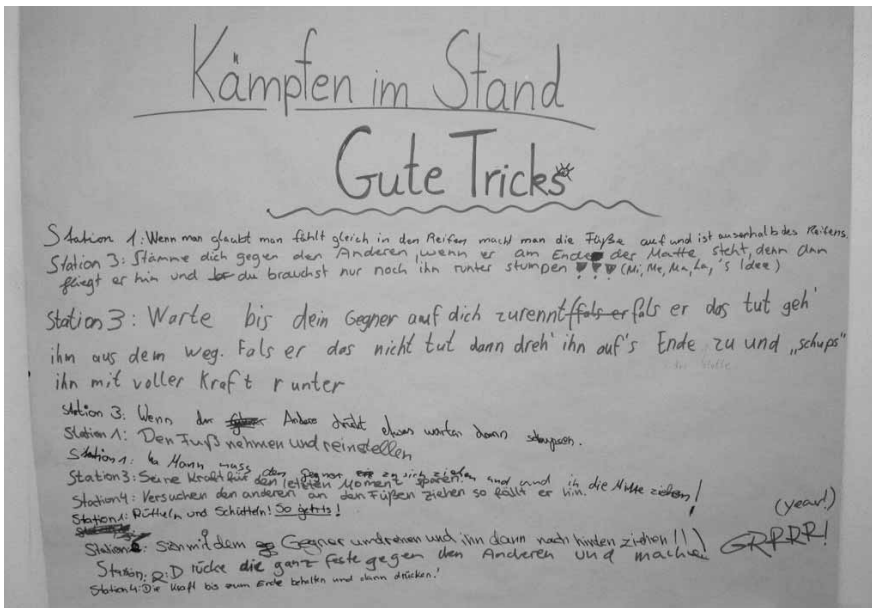 Kämpfen im Stand
Gute Tricks
Station 1: Wenn man glaubt man fählt gleich in den Reifen macht man die Füße auf und ist auserhalb des Reifens.
Station 3: Stämme dich gegen den Anderen, wenn er am Ende der Matte steht, denn dan
fliegt er hin und du brauchst nur noch ihn runter stumpen !!! (Mi, Me, Ma, La, 's Idee)
Station 3: Warte bis dein Gegner auf dich zurennt fals er das tut geh'
ihm aus dem weg. Fals er das nicht tut dann dreh' ihn auf's Ende zu und „schups"
der Matte
ihn mit voller Kraft runter
Station 3: Wenn der Andere drückt etwas warten dann schupsen.
Station 1: Den Fuß nehmen und reinstellen
Station 1: Man muss den Gegner zu sich ziehen und in die Mitte ziehen!
Station 3: Seine Kraft für den letzten Moment sparen! und
Station 4: Versuchen den anderen an den Füßen ziehen so fällt er hin.
Station 1: Rütteln und Schütteln! So gehts!
(yeaw!)
Station: Sich mit dem Gegner umdrehen und ihn dann nach hinden ziehen!!!)
GRRRR!
Station: 2: Drücke die ganz feste gegen den Anderen und mache
Station 4: Die Kraft bis zum Ende behalten und dann drücken!